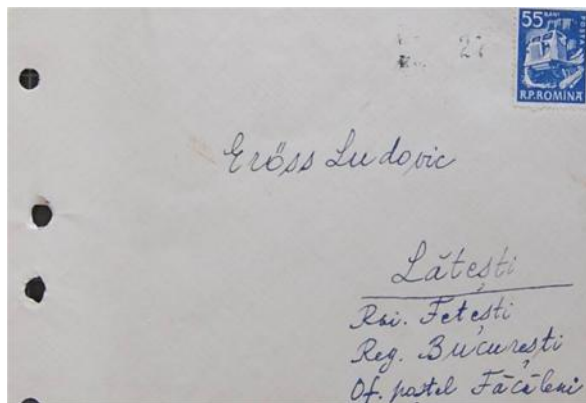 55 BANI
POSTA
R.P.ROMINA
27
Erőss Ludovic
Lătești
Rai. Fetești
Reg. București
Of. postal Făcăleni